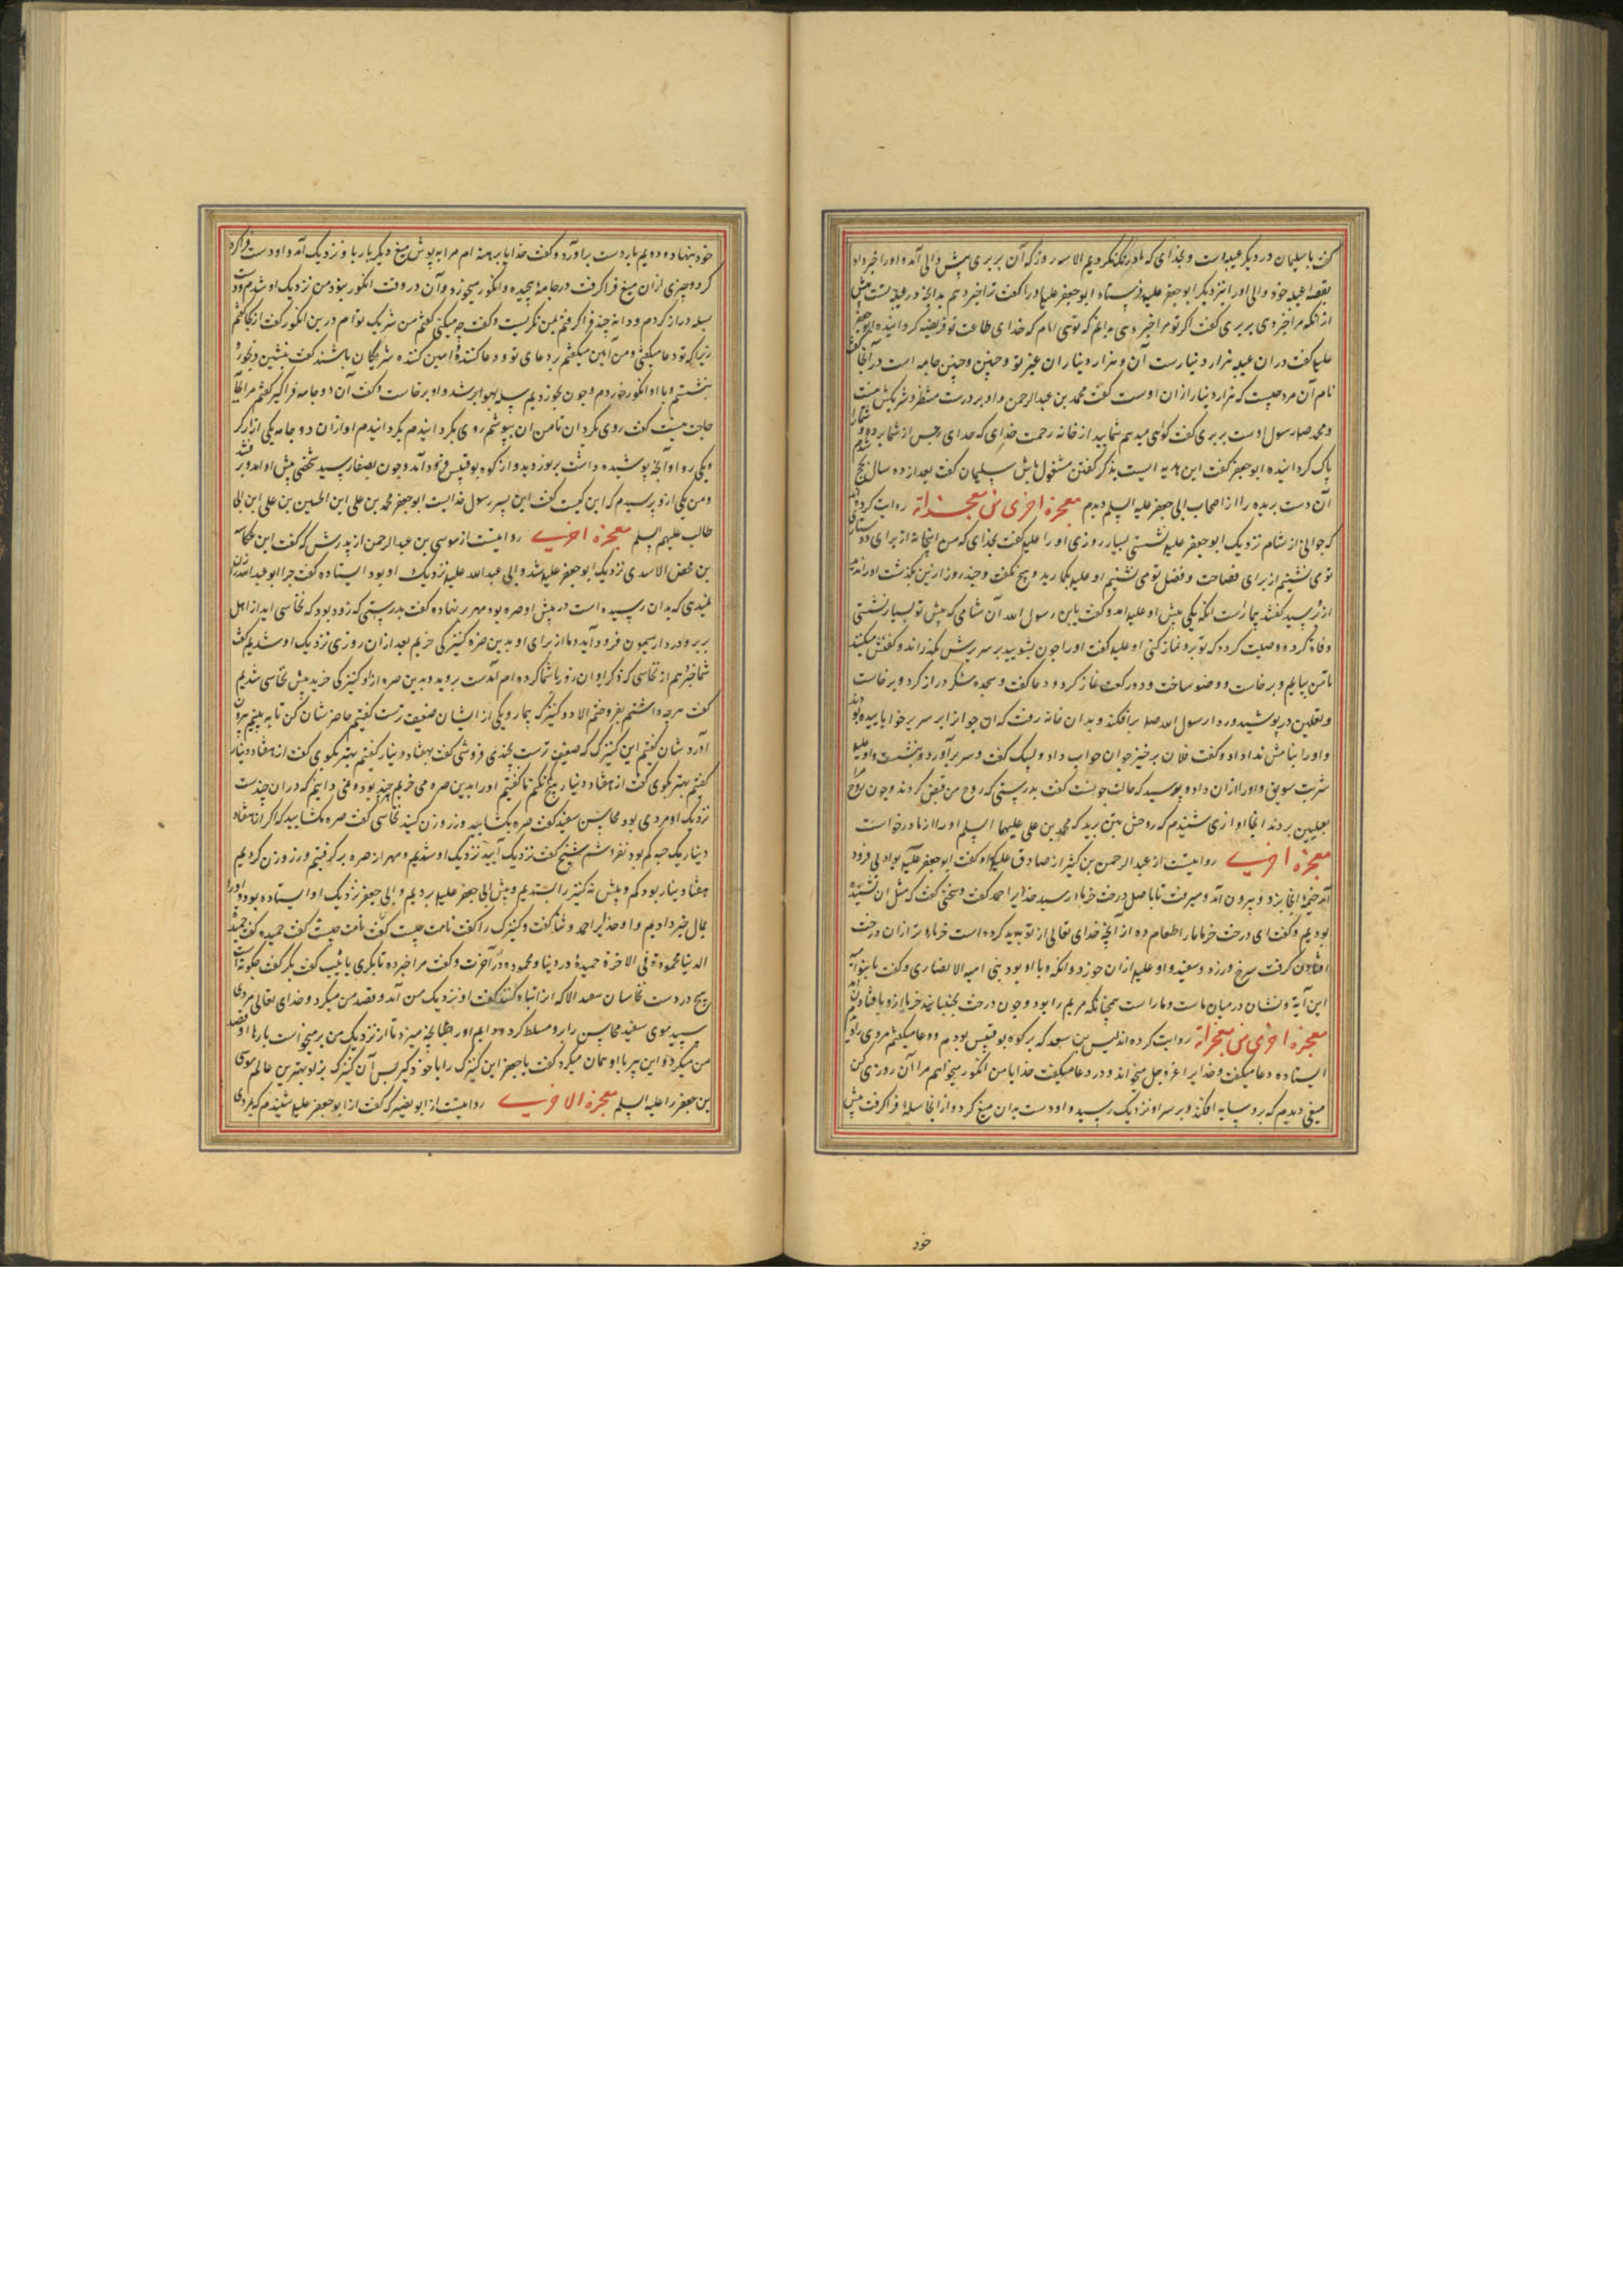 کن یا سلیمان در دیگر عیبه است و بخدای که ما درنگ نکردیم الا سه روز که آن بربری پیش والی آمد و او را خبر داد
بقصهٔ عیبهٔ خود والی او را بنزدیک ابو جعفر علیه فرستاد ابو جعفر علیه او را گفت ترا خبر دهم بدانچه در عیبه تست پیش
از آنکه مرا خبر دهی بربری گفت اگر تو مرا خبر دهی بدانم که تویی امام که خدای طاعت تو فریضه گردانیده ابو جعفر
علیه گفت در آن عیبه هزار دینارست آن تو و هزار دینار از آن غیر تو و چنین و چنین جامه است در آنجا گفت
نام آن مرد چیست که هزار دینار از آن اوست گفت محمد بن عبد الرحمن و او بر درت منتظر
و محمد صلی رسول اوست بربری گفت گواهی میدهم شمایید از خانه رحمت خدای که خدای رجس از شما برده و شما را
پاک گردانیده ابو جعفر گفت این هدیه ایست بذکر گفتن مشغول باش سلیمان گفت بعد از ده سال بحج شدم
آن دست بریده را از اصحاب ابی جعفر علیه السلم دیدم معجزة اخری من معجزاته روایت کرده‌اند
که جوانی از شام نزدیک ابو جعفر علیه نشستی بسیار روزی او را علیه گفت بخدای که من اینجا نه از برای دوستی
تو می نشینم از برای فصاحت و فضل تو می نشینم او علیه بخندید و هیچ نگفت و چند روز ازین بگذشت او را ندید
از او پرسید گفتند بیمارست آنگه یکی پیش او علیه آمد و گفت یا بن رسول الله آن شامی که پیش تو بسیار نشستی
وفات کرد و وصیت کرد که تو برو نماز کنی او علیه گفت او را چون بشویید بر سریرش بگذارند و کفنش میکنند
تا من بیایم و برخاست و وضو ساخت و دو رکعت نماز کرد و دعا گفت و سجده شکر دراز کرد و برخاست
و نعلین در پوشید و ردا رسول الله صله برافکند و بدان خانه رفت که آن جوانرا بر سریر خوابانیده بودند
و او را بنامش ندا داد و گفت فلان برخیز جوان جواب داد و لبیک گفت و سر برآورد و بنشست و او علیه
شربت سویق و او را از آن داد و پرسید که حالت چونست گفت بدرستی که روح من قبض کردند و چون روح مرا
بعلیین بردند آنجا آوازی شنیدم که روحش بتن برید که محمد بن علی علیهما السلم او را از ما درخواست
معجزة اخری روایتست از عبد الرحمن بن کثیر از صادق علیه که او گفت ابو جعفر علیه بوادیی فرود
آمد خیمه آنجا بزد و بیرون آمد و میرفت تا باصل درخت خرما رسید خدایرا حمد گفت و سخنی گفت که مثل آن نشنیده
بودیم و گفت ای درخت خرما ما را طعام ده از آنچه خدای تعالی از تو پدید کرده است خرماء تر از آن درخت
افتادن گرفت سرخ و زرد و سفید و او علیه از آن خورد و آنکه و با او بود بنی امیه الانصاری و گفت یا بنی امیه
این آیه و نشان در میان ماست و ما راست همچنانکه مریم را بود و چون درخت بجنبانید خرما ازو بافتادن
معجزة اخری من معجزاته روایت کرده اند لیس بن سعد که بر کوه بو قبیس بودم و دعا میگفتم مردی را دیدم
ایستاده دعا میگفت و خدایرا عز و جل میخواند و در دعا میگفت خدایا من انگور میخواهم مرا آن روزی کن
میغی دیدم که برو سایه افکند و بر سر او نزدیک رسید و او دست بدان میغ کرد و از آنجا سلهٔ فرا گرفت پیش
خود
خود بنهاد و دویم بار دست برآورد و گفت خدایا برهنه ام مرا بپوش میغ دیگر بار با و نزدیک آمد و او دست فراز
کرد و چیزی از آن میغ فرا گرفت در جامهٔ پیچیده و انگور میخورد و آن در وقت انگور نبود من نزدیک او شدم و دست
بسله دراز کردم و دانهٔ چند فرا گرفتم بمن نگریست و گفت چه میکنی گفتم من شریک توام درین انگور گفت از کجا گفتم
زیرا که تو دعا میگفتی و من آمین میگفتم بر دعای تو و دعا کننده و آمین کننده شریکان باشند گفت بنشین و بخور
بنشستم و با او انگور خوردم و چون بخوردیم سله بهوا بر شد و او برخاست و گفت آن دو جامه فرا گیر گفتم مرا بجامه
حاجت نیست گفت روی بگردان تا من آن بپوشم روی بگردانیدم او از آن دو جامه یکی ازار کرد
و یکی ردا و آنچه پوشیده داشت بر نوردید و از کوه بو قبیس فرود آمد و چون بصفا رسید شخصی پیش او آمد
و من یکی ازو پرسیدم که این کیست گفت این پسر رسول خداست ابو جعفر محمد بن علی ابن الحسین بن علی ابن ابی
طالب علیهم السلم معجزة اخری روایتست از موسی بن عبد الرحمن از پدرش که گفت ابن عکاشه
بن محصن الاسدی نزدیک ابو جعفر علیه شد و ابی عبد الله علیه نزدیک او بود ایستاده گفت چرا ابو عبد الله را زن
نمیدهی که بدان رسیده است در پیش او صره بود مهر بر نهاده گفت بدرستی که زود بود که نخاسی آید از اهل
بربر و در دار میمون فرود آید و ما از برای او بدین صره کنیزکی خریم بعد از آن روزی نزدیک او شدیم گفت
شما خبر دهم از نخاسی که ذکر او آن روز با شما کرده ام آمدست بروید و بدین صره ازو کنیزکی خرید پیش نخاسی شدیم
گفت هر چه داشتم بفروختم الا دو کنیزک بیمار و یکی از ایشان ضعیف ترست گفتیم حاضر شان کن تا به بینیم بیرون
آورد شان گفتیم این کنیزک که ضعیف ترست بچندی فروشی گفت بهفتاد دینار گفتیم بهتر بگوی گفت از هفتاد دینار
گفتیم بهتر بگوی گفت از هفتاد دینار هیچ کم نکنم ما گفتیم او را بدین صره می خریم چند بود و نمی دانیم که در آن چندست
نزدیک او مردی بود محاسن سفید گفت صره بگشایید و زر وزن کنید نخاسی گفت صره مگشایید که اگر از هفتاد
دینار یک حبه کم بود نفروشم شیخ گفت نزدیک آیید نزدیک او شدیم و مهر از صره برگرفتیم و زر وزن کردیم
هفتاد دینار بود نه کم و بیش نه کنیزک را بستدیم و پیش ابی جعفر علیه بردیم و ابی جعفر نزدیک او ایستاده بود و او را
بحال خبر دادیم و او خدایرا حمد و ثنا گفت و کنیزک را گفت نامت چیست گفت حمیده گفت حمیدة
الدنیا محمودة فی الاخرة حمیدهٔ در دنیا و محموده در آخرت و گفت مرا خبر ده تا بکری یا ثیب گفت بکر گفت چگونه است
هیچ در دست نخاسان نیفتد الا که آنرا تباه کنند گفت او نزدیک من آمد و قصد من میکرد و خدای تعالی مردی
سپید موی سفید محاسن را برو مسلط کرد و دایم او را طپانچه میزد تا از نزدیک من برمیخواست بارها او قصد
من میکرد و این پیر با او همان میکرد گفت یا جعفر این کنیزک را با خود گیر پس آن کنیزک بزاد بهترین عالم موسی
بن جعفر را علیه السلم معجزة الاخری روایتست از ابو بصیر که گفت از ابو جعفر علیه شنیدم که مردی